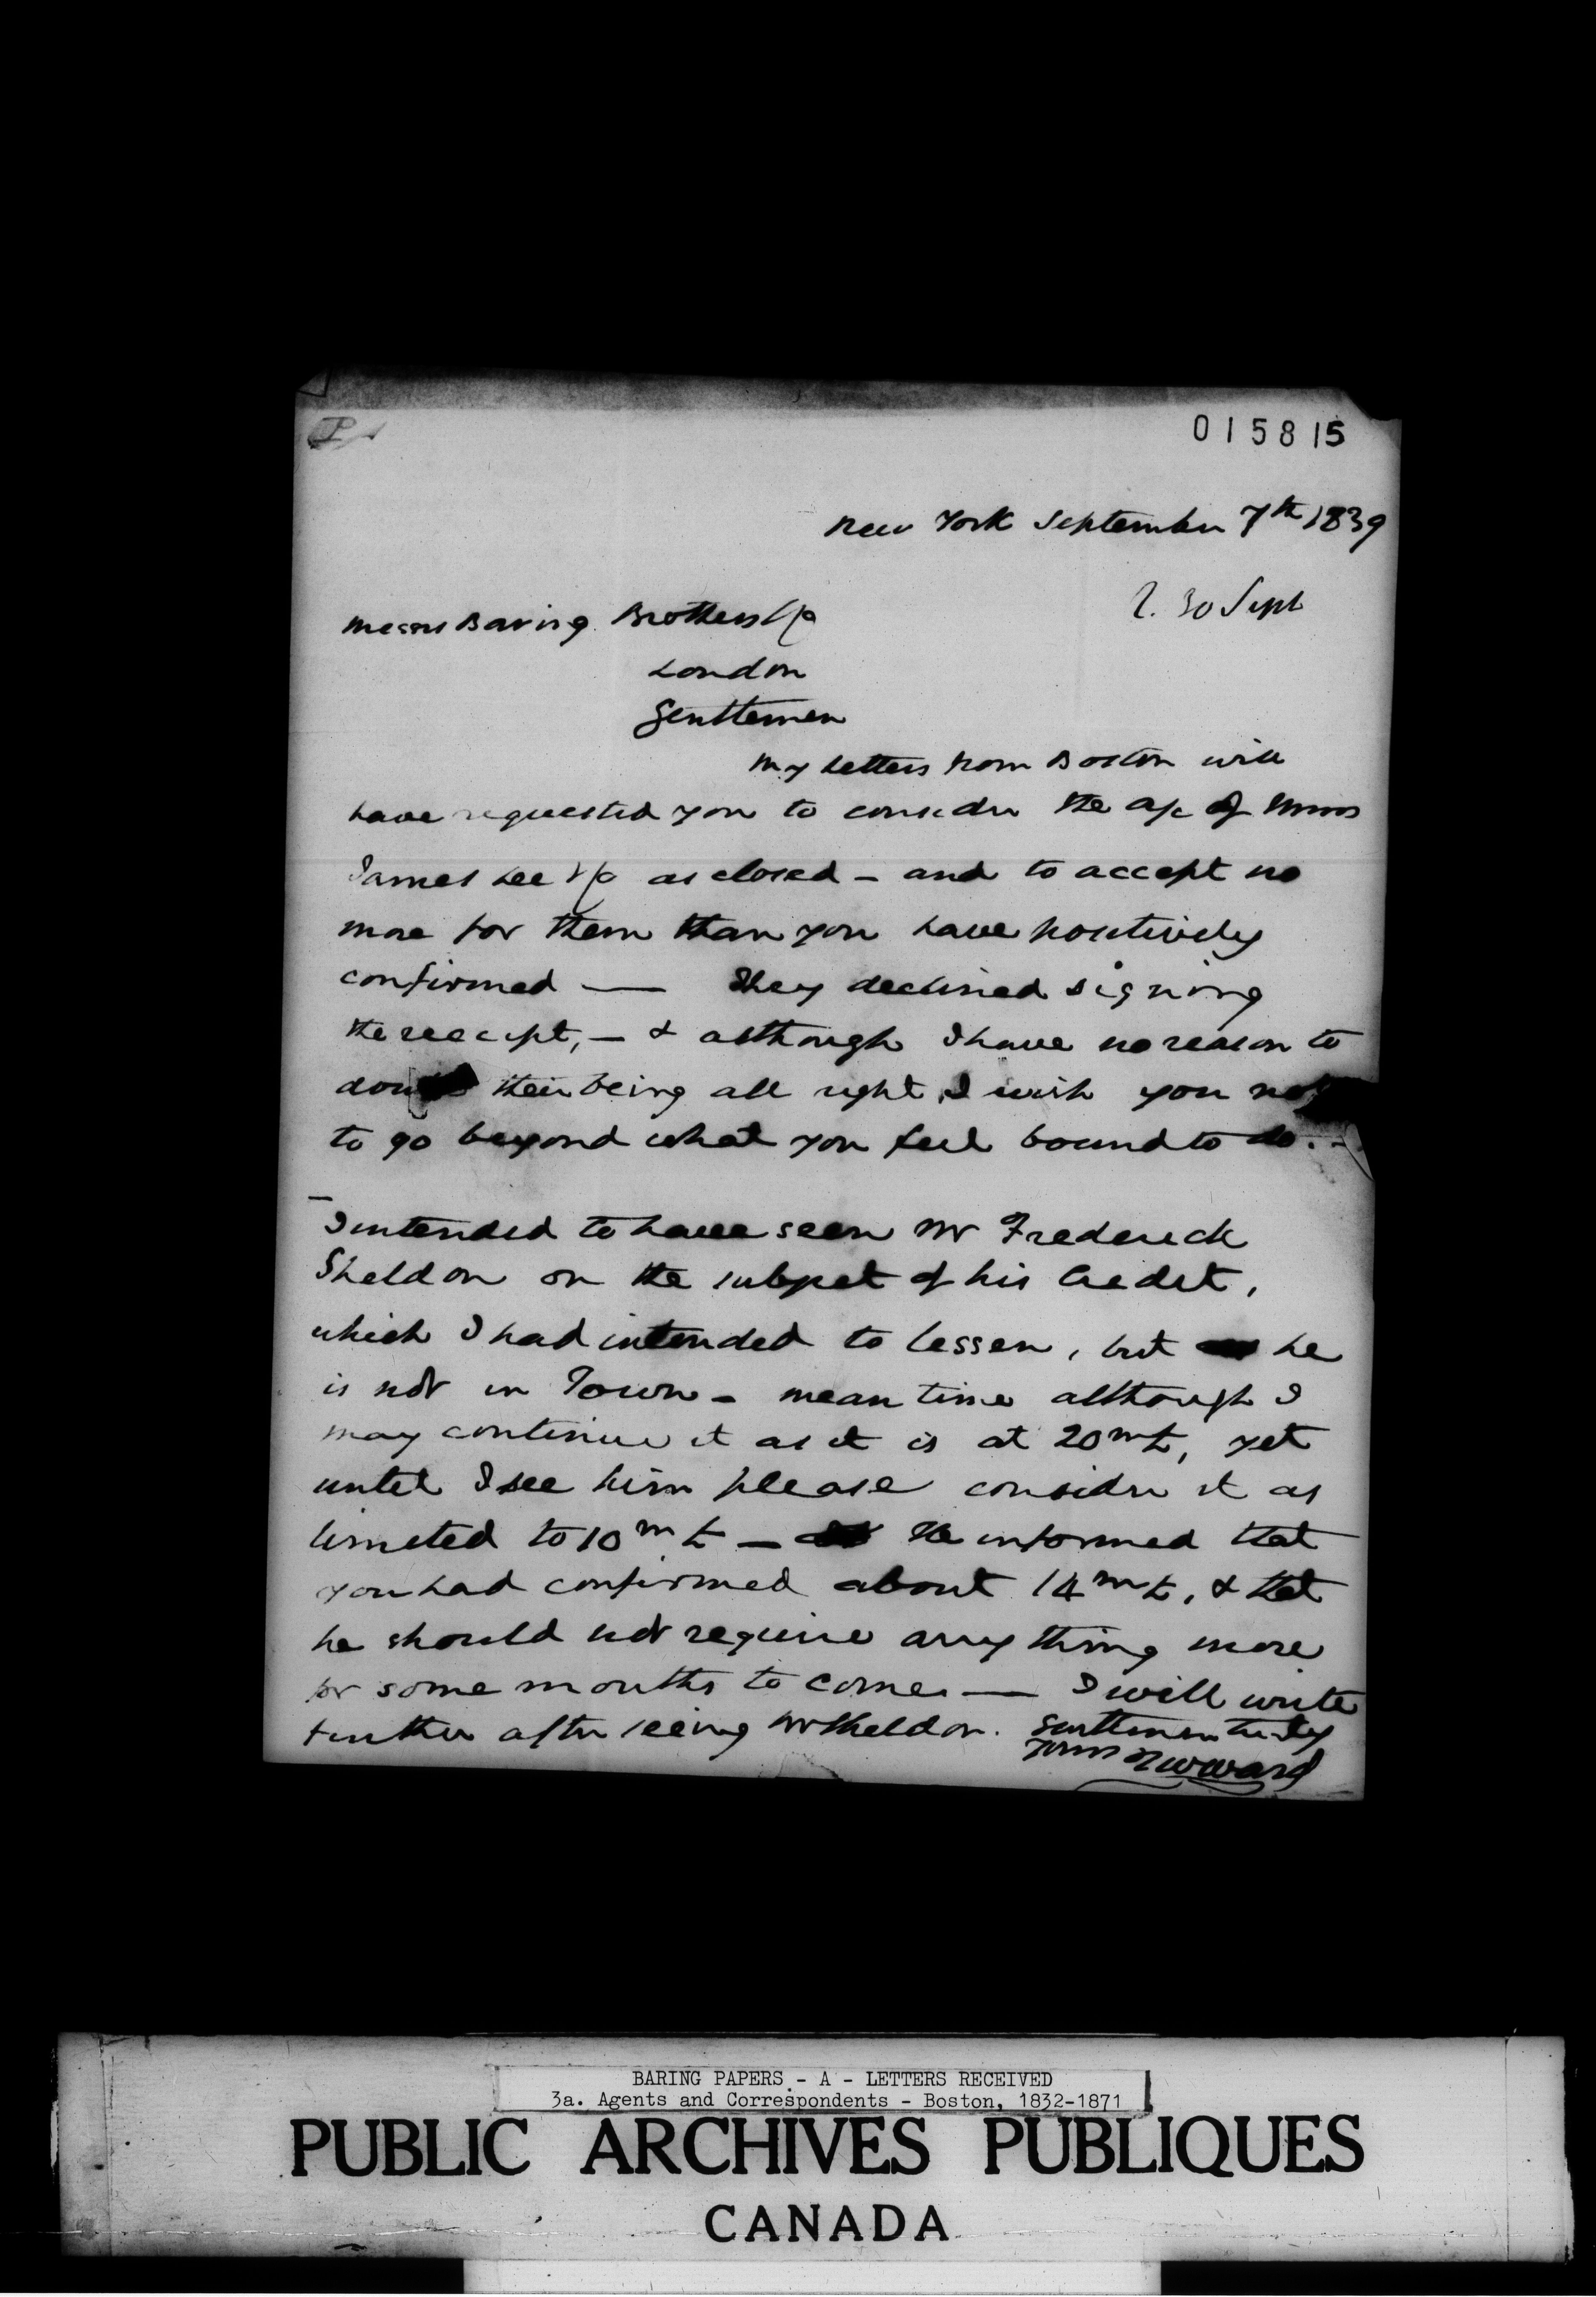 015815
New York September 7th 1839
Messrs Baring Brothers & Co
London
Gentlemen
My Letters from Boston will
have requested you to consider the a/c of Messrs
James Lee & Co as closed - and to accept no
more for them than you have positively
confirmed — They declined signing
the receipt, - & although I have no reason to
doubt their being all right, I wish you not
to go beyond what you feel bound to do. -
I intended to have seen Mr Frederick
Sheldon on the subject of his Credit,
which I had intended to lessen, but he
is not in Town - mean time although I
may continue it as it is at 20m £, yet
until I see him please consider it as
limited to 10m £ - He informed that
you had confirmed about 14m £, & that
he should not require any thing more
for some months to come — I will write
further after seeing Mr Sheldon. Gentlemen truly
Yours T W Ward
30 Sept
BARING PAPERS - A - LETTERS RECEIVED
3a. Agents and Correspondents - Boston, 1832-1871
PUBLIC ARCHIVES PUBLIQUES
CANADA